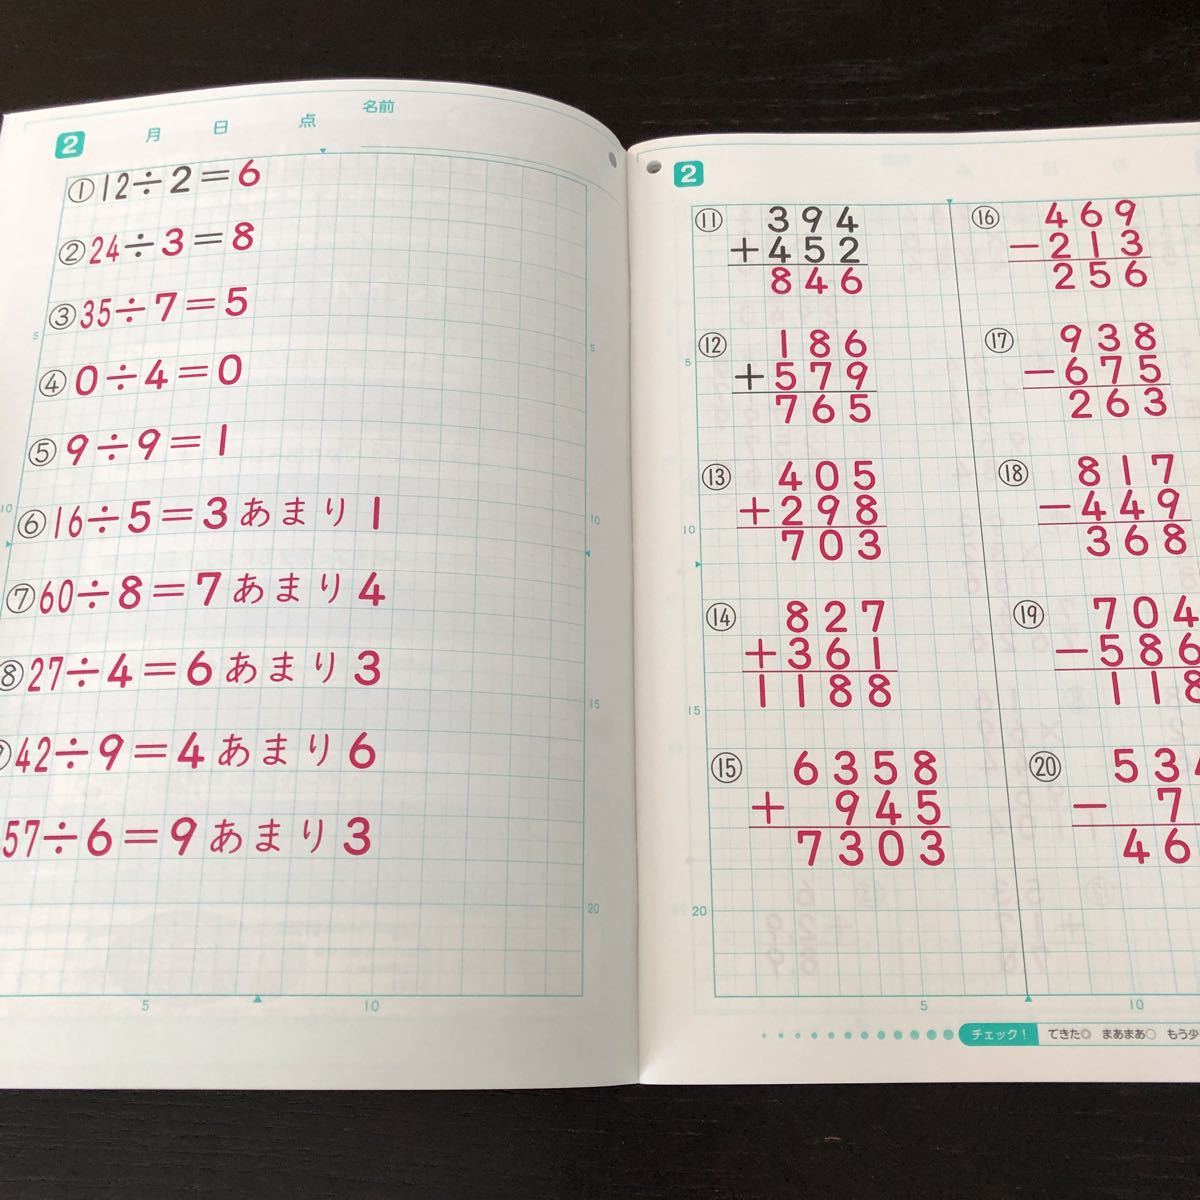 2 月 日 点 名前
①12÷2=6
②24÷3=8
③35÷7=5
④0÷4=0
⑤9÷9=1
⑥16÷5=3あまり1
⑦60÷8=7あまり4
⑧27÷4=6あまり3
42÷9=4あまり6
57÷6=9あまり3
5
10
5
10
15
20
5 10
2
⑪ 394
+452
846
⑫ 186
+579
765
⑬ 405
+298
703
⑭ 827
+361
1188
⑮ 6358
+ 945
7303
⑯ 469
-213
256
⑰ 938
-675
263
⑱ 817
-449
368
⑲ 704
-586
118
⑳ 534
- 7
46
5
10
15
20
5 10
チェック! できた◎ まあまあ○ もう少